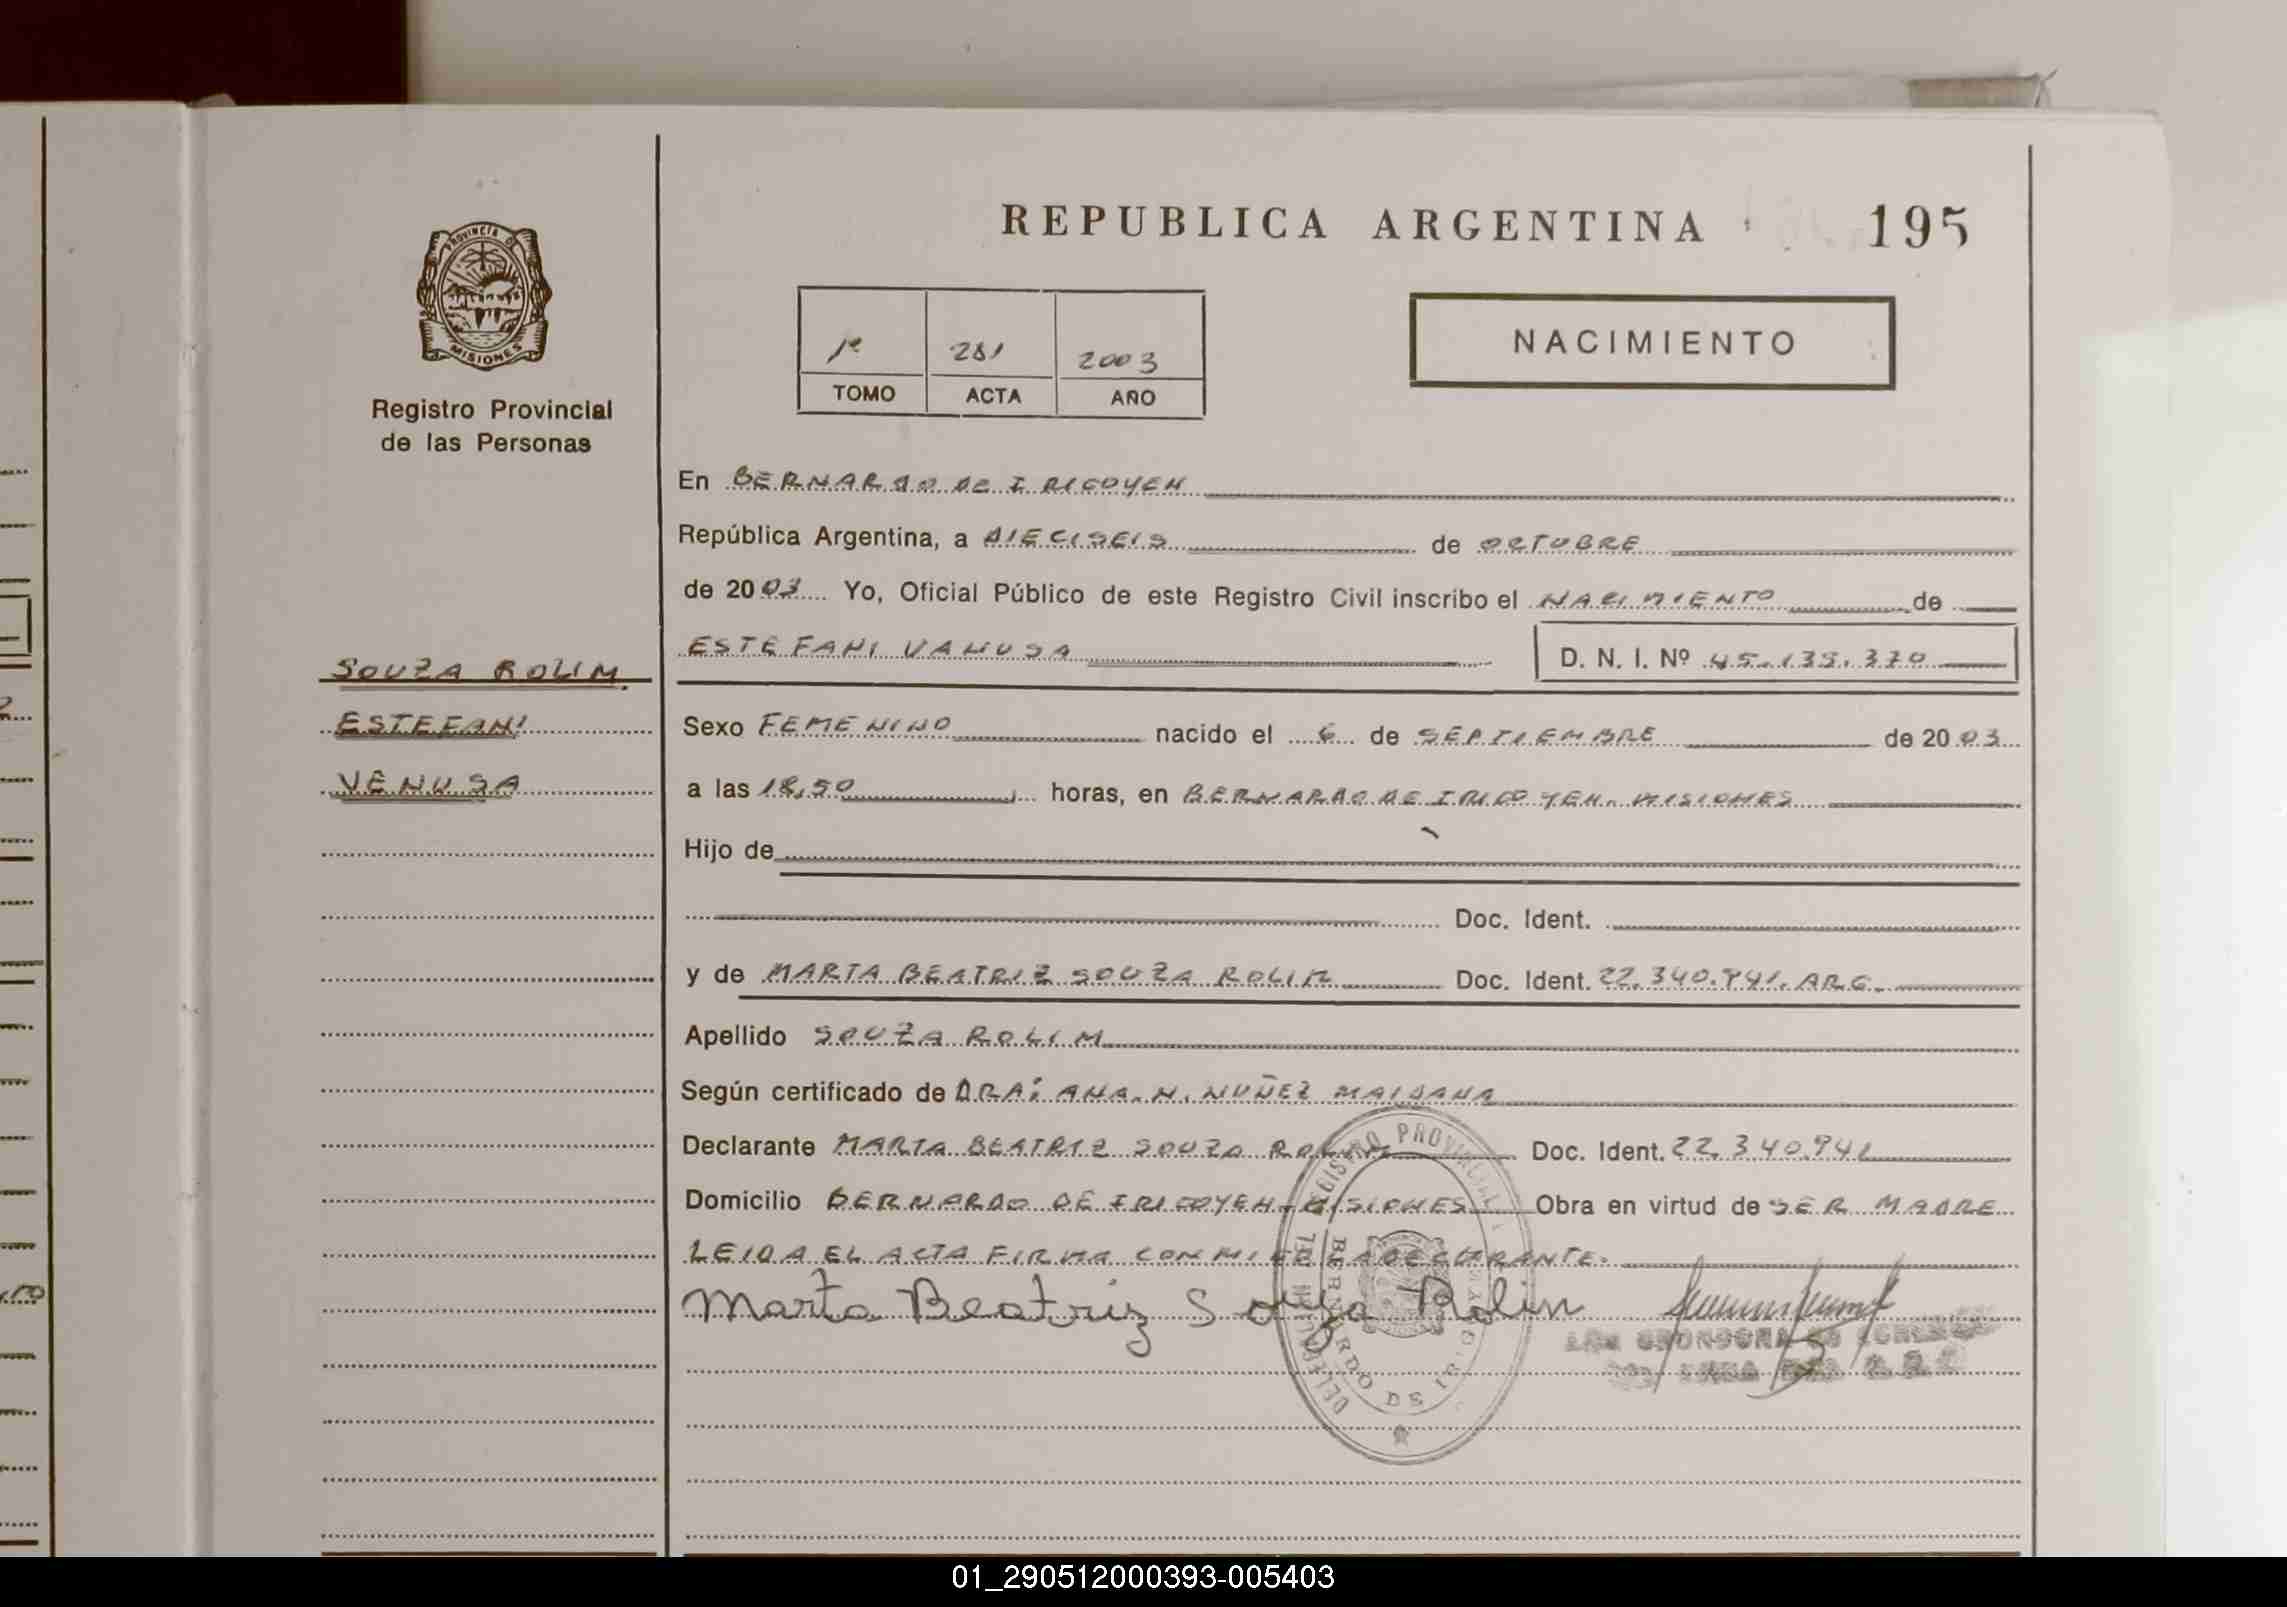 REPUBLICA ARGENTINA
195
PROVINCIA DE
MISIONES
Registro Provincial
de las Personas
1º 281 2003
TOMO ACTA AÑO
NACIMIENTO
En BERNARDO DE IRIGOYEN
República Argentina, a DIECISEIS de OCTUBRE
de 2003 Yo, Oficial Público de este Registro Civil inscribo el NACIMIENTO de
ESTEFANI VANUSA D. N. I. Nº 45.135.370
SOUZA ROLIM
ESTEFANI
VENUSA
Sexo FEMENINO nacido el 6 de SEPTIEMBRE de 2003
a las 18,50 horas, en BERNARDO DE IRIGOYEN. MISIONES
Hijo de
Doc. Ident.
y de MARTA BEATRIZ SOUZA ROLIM Doc. Ident. 22.340.941. ARG.
Apellido SOUZA ROLIM
Según certificado de DRA: ANA. N. NUÑEZ MAIDANA
Declarante MARTA BEATRIZ SOUZA ROLIM Doc. Ident. 22.340.941
Domicilio BERNARDO DE IRIGOYEN-MISIONES Obra en virtud de SER MADRE
LEIDA EL ACTA FIRMA CONMIGO LA DECLARANTE.
Marta Beatriz Souza Rolin
DELEGACION DEL REGISTRO PROVINCIAL
BERNARDO DE IRIGOYEN
01_290512000393-005403